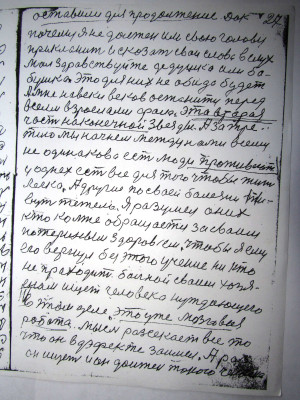 27
оставили для продолжение как
почему я не достен им свою голову
приклонит и сказат свои слова в слух
мол здравствуйте дедушка или ба-
бушка. Это для них не обида будет
а мне на веки веков останит перед
всеми взрослыми слава. Эта вторая
част наконечной Звезды. А за тре-
тию мы начнем между нами всеми
не одинаково ест люди проживают
у одних ест все для того чтобы жит
легко. А другие по своей болезни жи-
вут тяжело. Я разумею о них
кто ко мне обращается за своим
потерянным здоровьем, чтобы я ему
его вернул без этого учение ни кто
не приходит больной своим
ищет человека нуждающего
в этом деле. это уже мозговая
работа. Мысл рассекает все то
что он в дефекте занят. А раз
он ищет и он должен такого